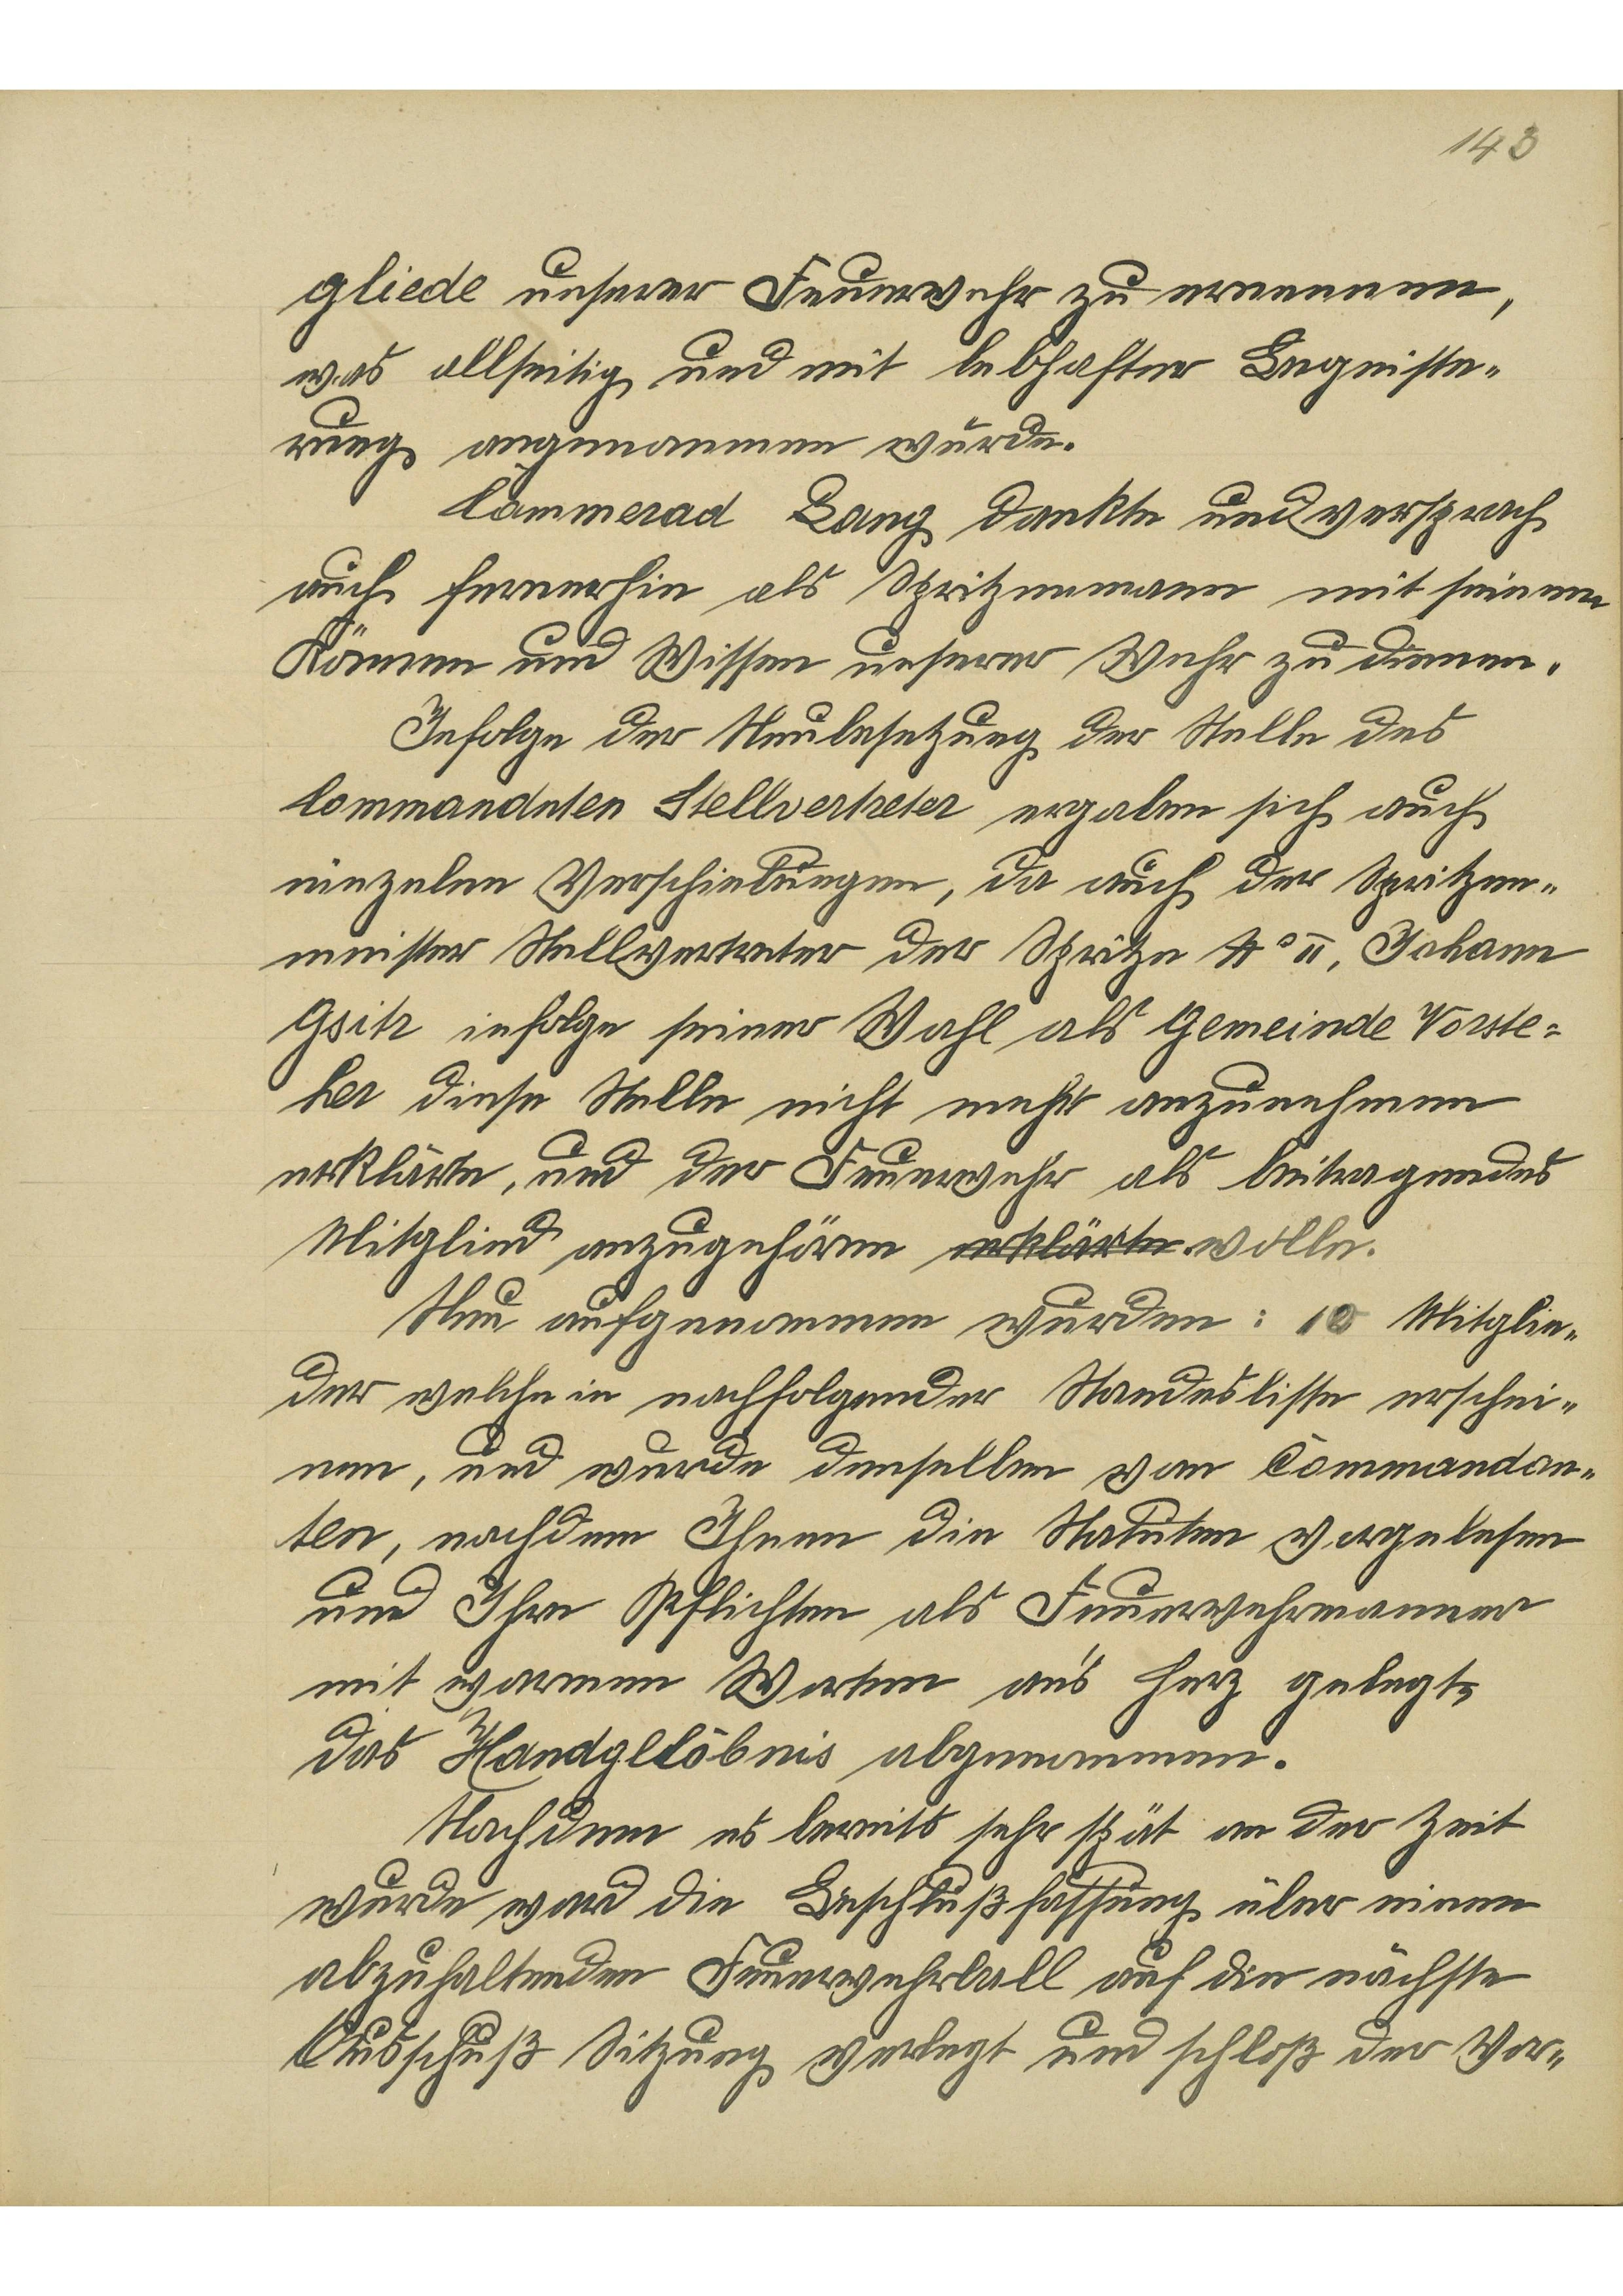 143
gliede unserer Feuerwehr zu ernennen,
was allseitig und mit lebhafter Begeiste-
rung angenommen wurde.
Cammerad Lang dankte und versprach
auch fernerhin als Spritzenmann mit seinem
Können und Wissen unserer Wehr zu dienen.
Infolge der Neubesetzung der Stelle des
Commandnten Stellvertreter ergaben sich auch
einzelne Verschiebungen, da auch der Spritzen-
meister Stellvertreter der Spritze No II, Johann
Gsitr infolge seiner Wahl als Gemeinde Vorste=
her diese Stelle nicht mehr anzunehmen
erklärte, und der Feuerwehr als beitragendes
Mitglied anzugehören erklärte wolle.
Neu aufgenommen wurden: 10 Mitglie-
der welche in nachfolgender Standesliste erschei-
nen, und wurde denselben vom Commandan-
ten, nachdem Ihnen die Statuten vorgelesen
und Ihre Pflichten als Feuerwehrmänner
mit warmen Worten an's Herz gelegt,
das Handgelöbnis abgenommen.
Nachdem es bereits sehr spät an der Zeit
wurde ward die Beschlußfassung über einen
abzuhaltenden Feuerwehrball auf die nächste
Ausschuß Sitzung verlegt und schloß der Vor-